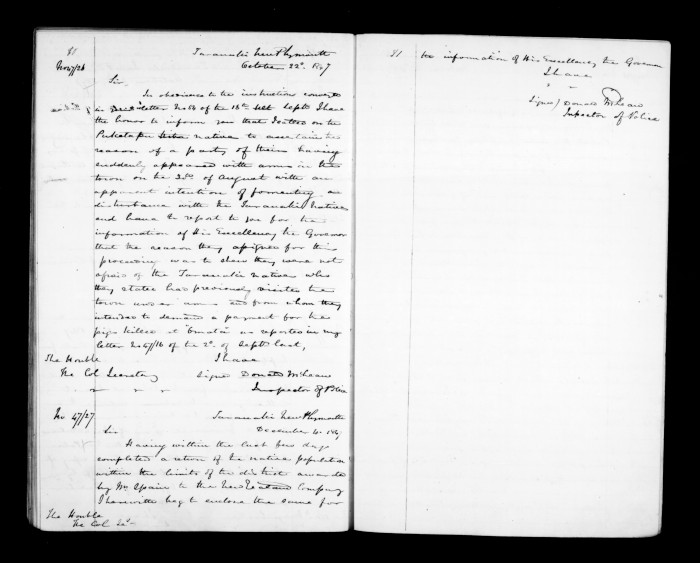 81
No 47/26
Taranaki New Plymouth
October 22d. 1847
Sir
In obedience to the instructions conveyed
in letter No 54 of the 16th Sept I have
the honor to inform you that I called on the
Puketapu natives to ascertain the
reason of a party of theirs having
suddenly appeared with arms in the
town on the 23d. of August with an
apparent intention of fomenting a
disturbance with the Taranaki Natives
and have to report to you for the
information of His Excellency the Governor
that the reason they assigned for this
proceeding was to shew they were not
afraid of the Taranaki natives who
they stated had previously visited the
town under arms and from whom they
intended to demand a payment for the
pigs killed at Omata as reported in my
letter No 47/16 of the 2d. of Septr last,
The Honble
I have
The Col Secretary
Signed Donald McLean
" " "
Inspector of Police
No 47/27
Taranaki New Plymouth
December 4. 1847
Sir
Having within the last few days
completed a return of the native population
within the limits of the district awarded
by Mr Spain to the New Zealand Company
I herewith beg to enclose the same for
The Honble
The Col Sec
81
the information of His Excellency the Governor
I have
" "
Signed/ Donald McLean
Inspector of Police